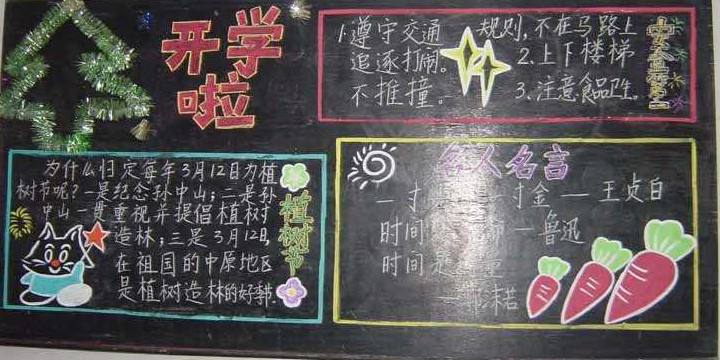 开学
啦
1.遵守交通 规则,不在马路上
追逐打闹。 2.上下楼梯
不推撞。 3.注意食品卫生。
安全
为什么归定每年3月12日为植
树节呢?一是纪念孙中山;二是孙
中山一直重视并提倡植树
造林;三是3月12日,
在祖国的中原地区
是植树造林的好季节.
植树节
名人名言
一寸 寸金——王贞白
时间 —鲁迅
时间是
沫若